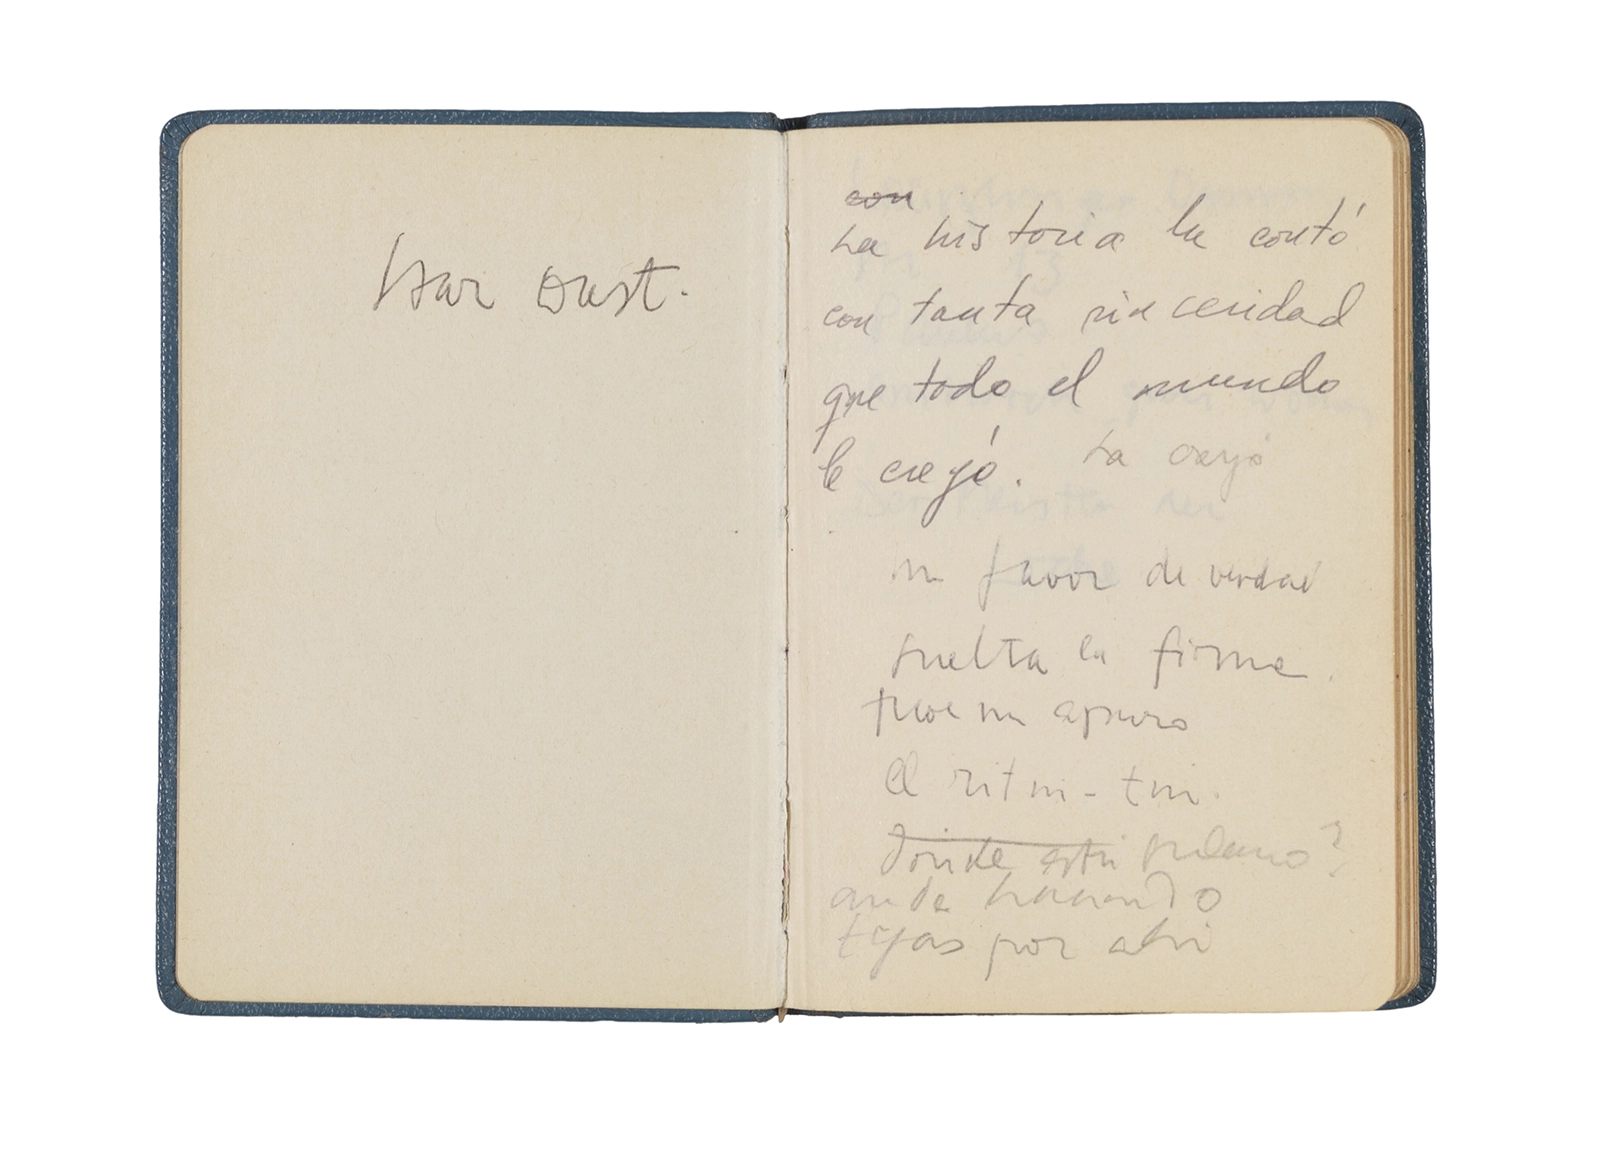 Star Dust.
con
La historia la contó
con tanta sinceridad
que todo el mundo
le creyó. La creyó
un favor de verdad
suelta la firme
pucha un apuro
el ritin-tin.
donde está fulano?
anda haciendo
tejas por ahí